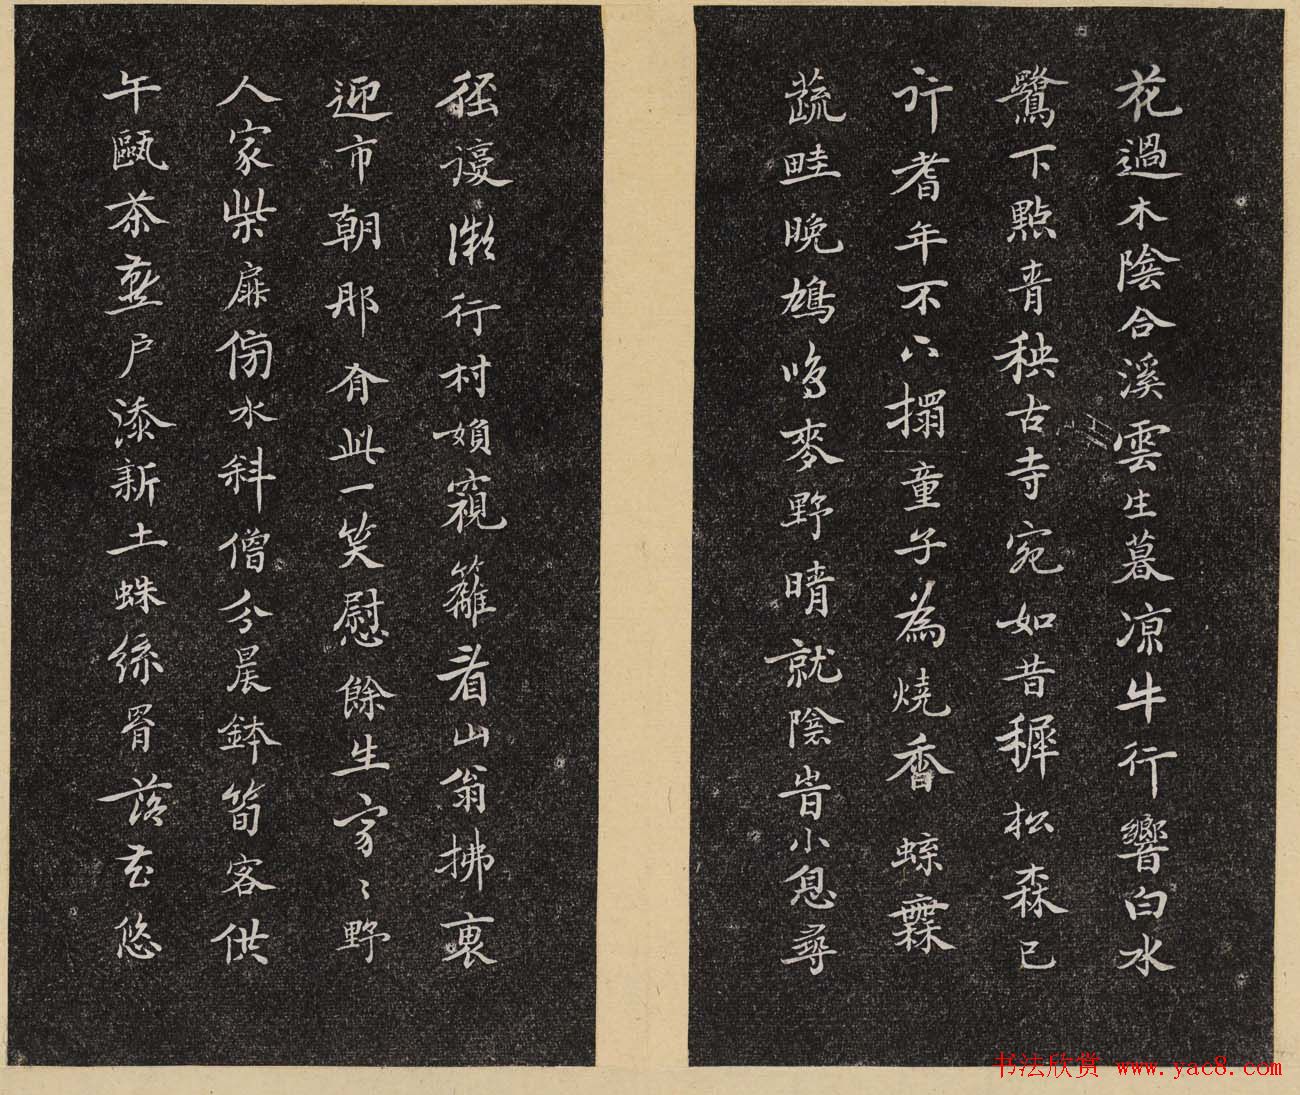 花過木陰合溪雲生暮凉牛行響白水
鷺下點青秧古寺宛如昔穉松森已
行耆年不下榻童子為燒香蝶舞
蔬畦晚鳩鳴麥野晴就陰旹小息尋
徑復微行村婦窺籬看山翁拂裹
迎市朝那有此一笑慰餘生家〻野
人家柴扉傍水斜僧分晨鉢筍客供
午甌茶蟄戶添新土蛛絲罥落花悠
书法欣赏 www.yac8.com